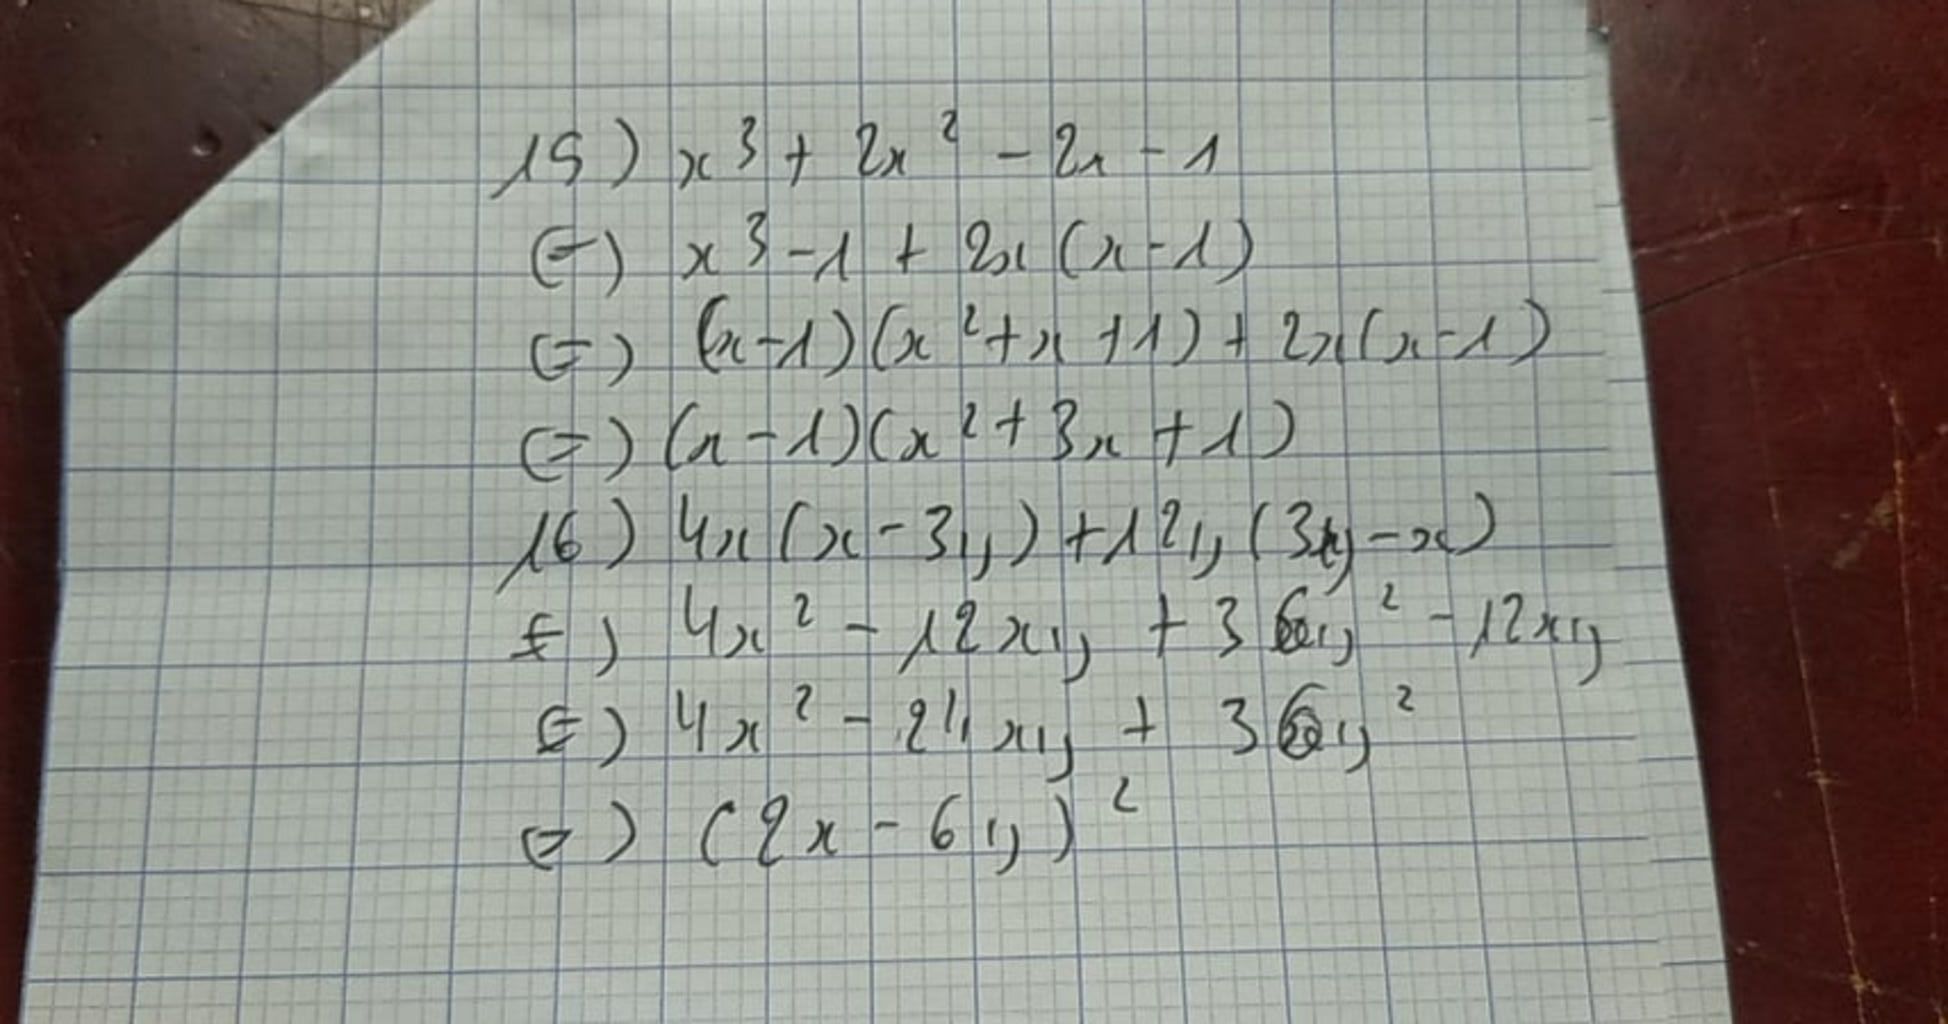 15) x³ + 2x² - 2x - 1
(=) x³ - 1 + 2x (x - 1)
(=) (x - 1)(x² + x + 1) + 2x(x - 1)
(=) (x - 1)(x² + 3x + 1)
16) 4x (x - 3y) + 12y (3y - x)
(=) 4x² - 12xy + 36y² - 12xy
(=) 4x² - 24xy + 36y²
(=) (2x - 6y)²